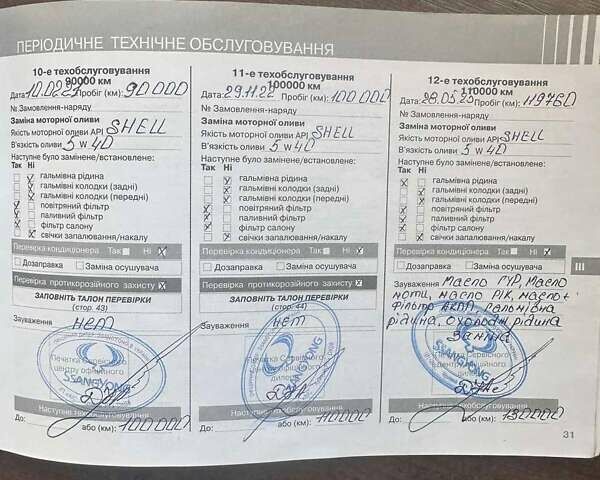 ПЕРІОДИЧНЕ ТЕХНІЧНЕ ОБСЛУГОВУВАННЯ
10-е техобслуговування
90000 км
Дата: Пробіг (км): 90000
№ Замовлення-наряду
Заміна моторної оливи
Якість моторної оливи API SHELL
В'язкість оливи 5 W 40
Наступне було замінене/встановлене:
Так Ні
гальмівна рідина
гальмівні колодки (задні)
гальмівні колодки (передні)
повітряний фільтр
паливний фільтр
фільтр салону
свічки запалювання/накалу
Перевірка кондиціонера Так Ні
Дозаправка Заміна осушувача
Перевірка протикорозійного захисту
ЗАПОВНІТЬ ТАЛОН ПЕРЕВІРКИ
(стор. 43)
Зауваження нет
Печатка Сервісного
центру офіційного
SSANGYONG
Наступне техобслуговування
До: або (км): 100000
11-е техобслуговування
100000 км
Дата: 29.11.22 Пробіг (км): 100000
№ Замовлення-наряду
Заміна моторної оливи
Якість моторної оливи API SHELL
В'язкість оливи 5 W 40
Наступне було замінене/встановлене:
Так Ні
гальмівна рідина
гальмівні колодки (задні)
гальмівні колодки (передні)
повітряний фільтр
паливний фільтр
фільтр салону
свічки запалювання/накалу
Перевірка кондиціонера Так Ні
Дозаправка Заміна осушувача
Перевірка протикорозійного захисту
ЗАПОВНІТЬ ТАЛОН ПЕРЕВІРКИ
(стор. 44)
Зауваження нет
Печатка Сервісного
центру офіційного
дилера
SSANGYONG
Наступне техобслуговування
До: або (км): 110000
12-е техобслуговування
110000 км
Дата: 28.05.25 Пробіг (км): 119760
№ Замовлення-наряду
Заміна моторної оливи
Якість моторної оливи API SHELL
В'язкість оливи 5 W 40
Наступне було замінене/встановлене:
Так Ні
гальмівна рідина
гальмівні колодки (задні)
гальмівні колодки (передні)
повітряний фільтр
паливний фільтр
фільтр салону
свічки запалювання/накалу
Перевірка кондиціонера Так Ні
Дозаправка Заміна осушувача
Зауваження масло ГУР, масло
мости, масло РК, масло+
фільтр АКПП, гальмівна
рідина, охолодж рідина
Заміна
Печатка Сервісного
центру офіційного
SSANGYONG
Наступне техобслуговування
До: або (км): 130000
III
31